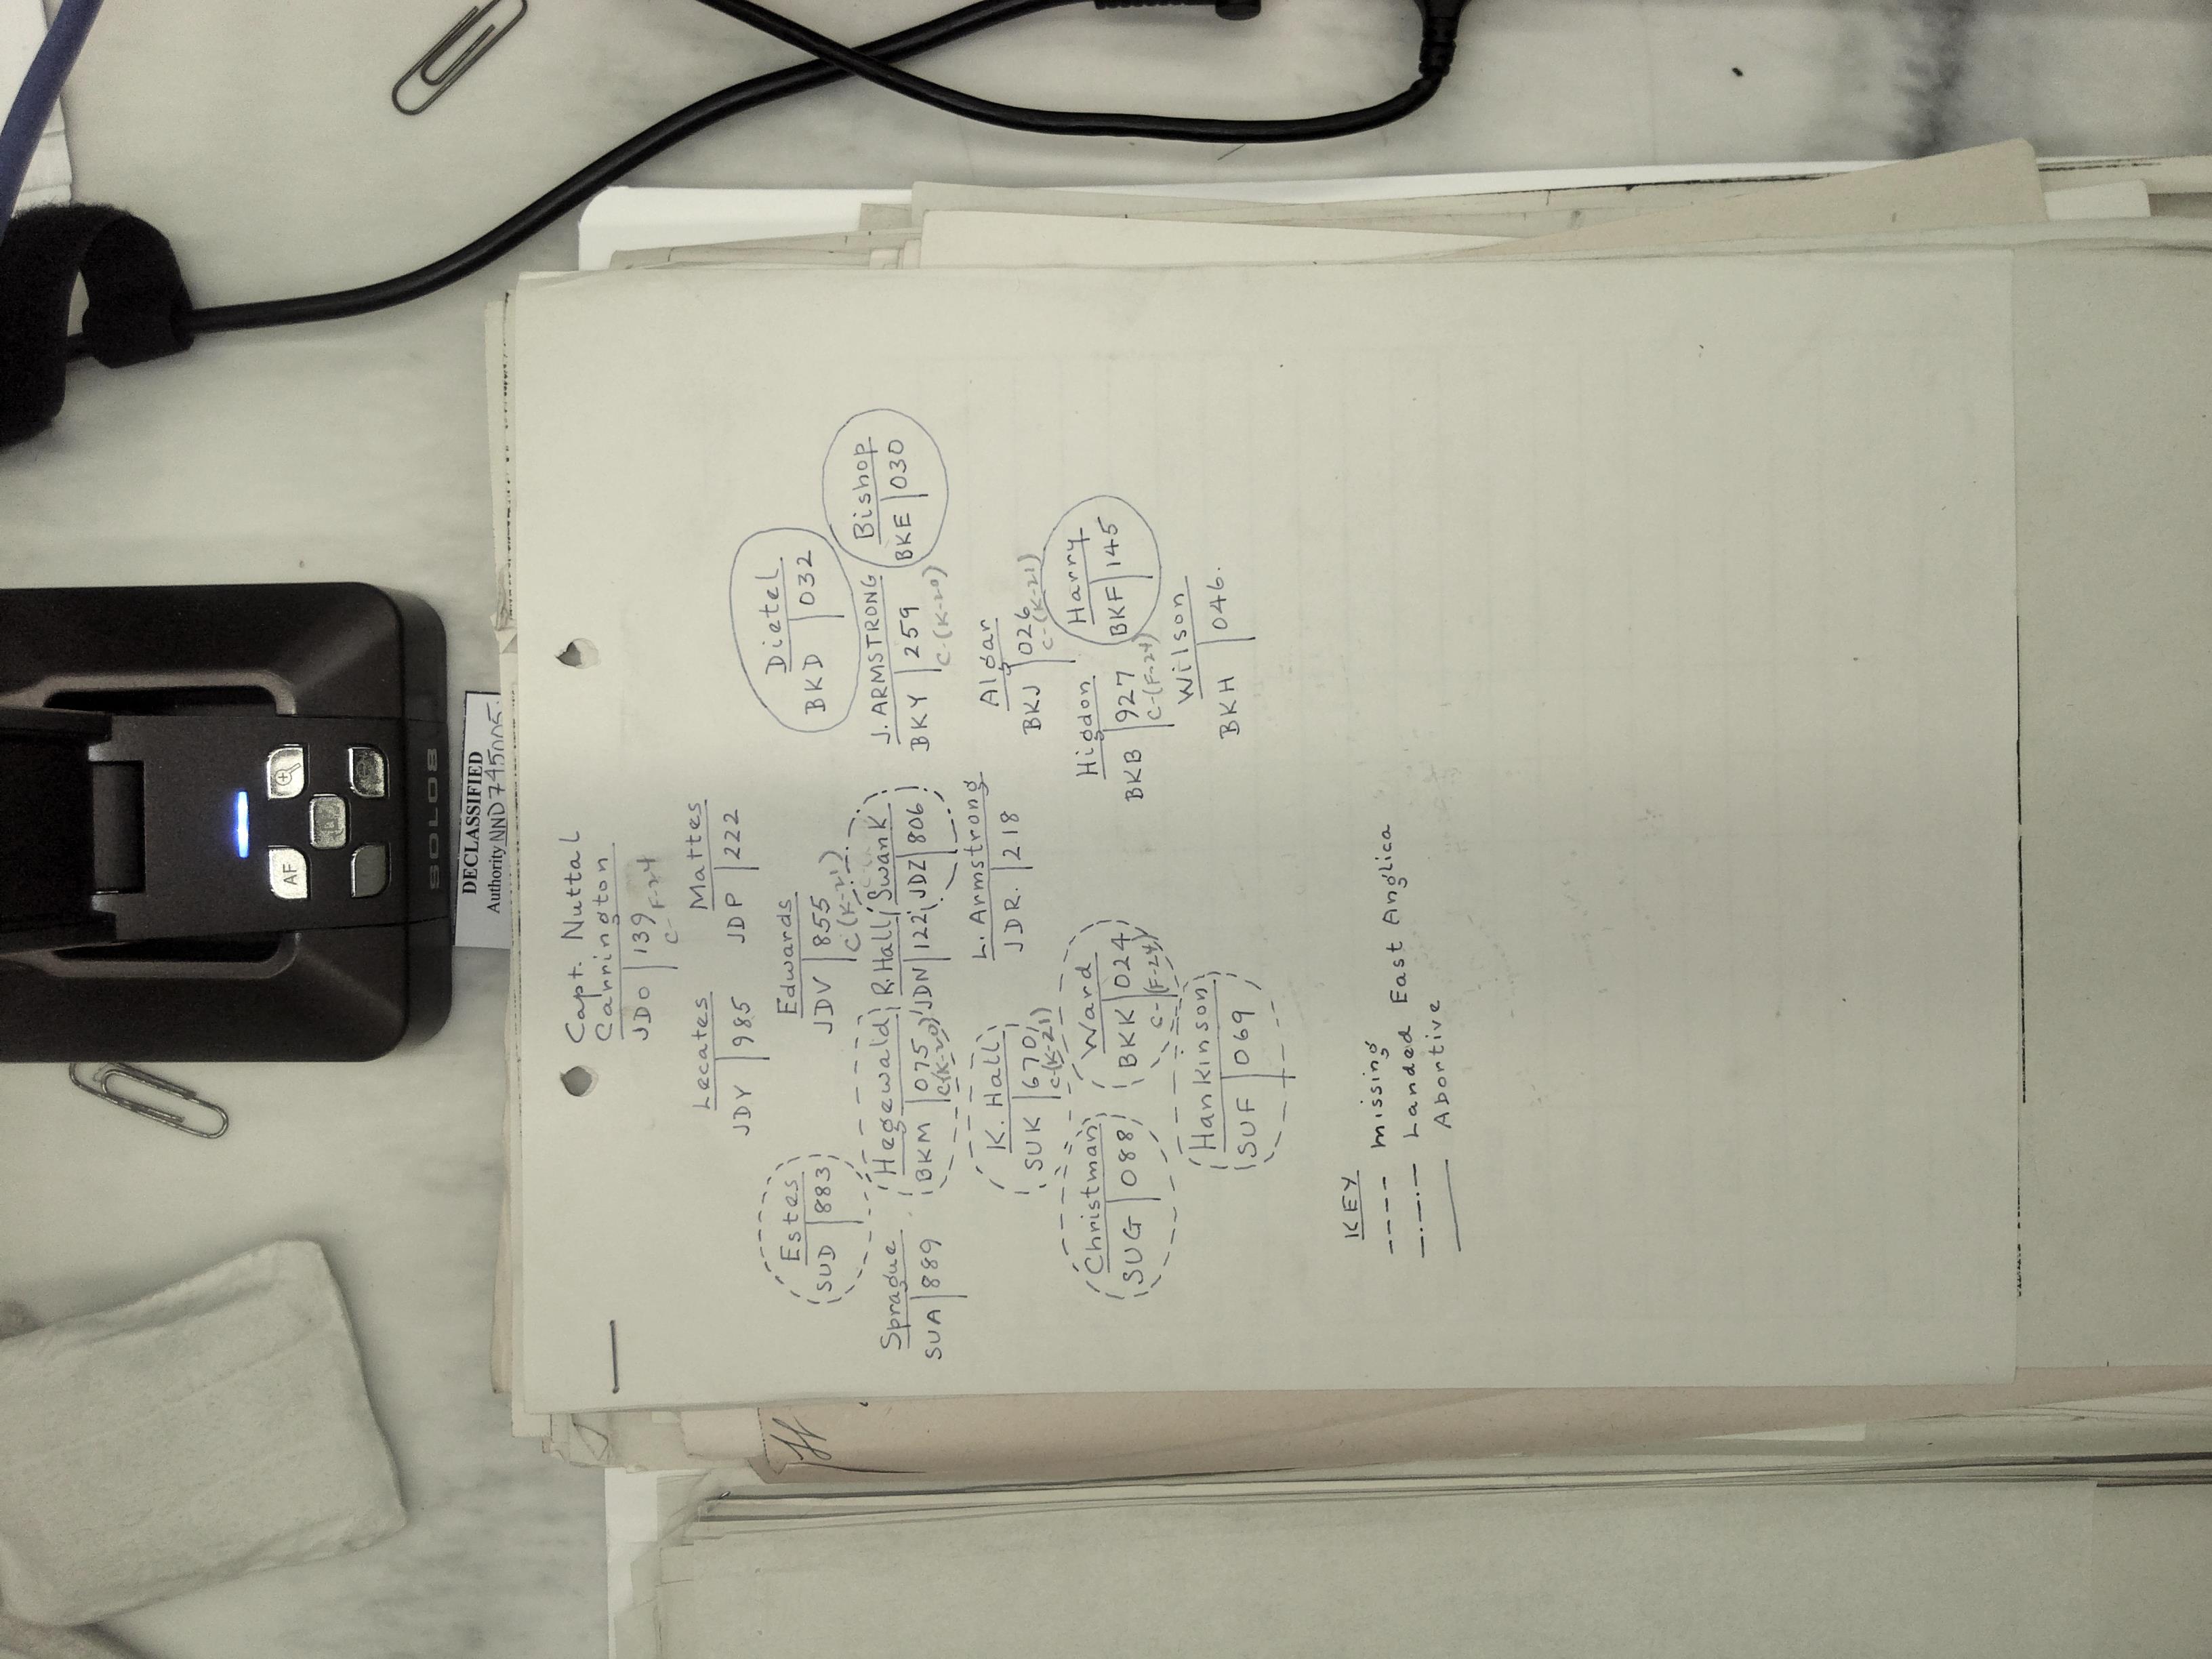 DECLASSIFIED
Authority NND745005
SOLO8
AF
Capt. Nuttal
Carrington
JDO 139
C-F-24
Lecates
JDY 985
Mattes
JDP 222
Edwards
JDV 855
C(K-21)
Dietel
BKD 032
Estes
SUD 883
Sprague
SUA 889
Hegewald
BKM 075
C(K-20)
R. Hall
JDN 122
Swank
JDZ 806
J. ARMSTRONG
BKY 259
C-(K-20)
Bishop
BKE 030
K. Hall
SUK 670
C(K-21)
L. Armstrong
JDR. 218
Algar
BKJ 026
C-(K-21)
Christman
SUG 088
Ward
BKK 024
C-(F-24)
Higdon
BKB 927
C-(F-24)
Harry
BKF 145
Hankinson
SUF 069
Wilson
BKH 046.
KEY
---- Missing
-.-.- Landed East Anglica
—— Abortive